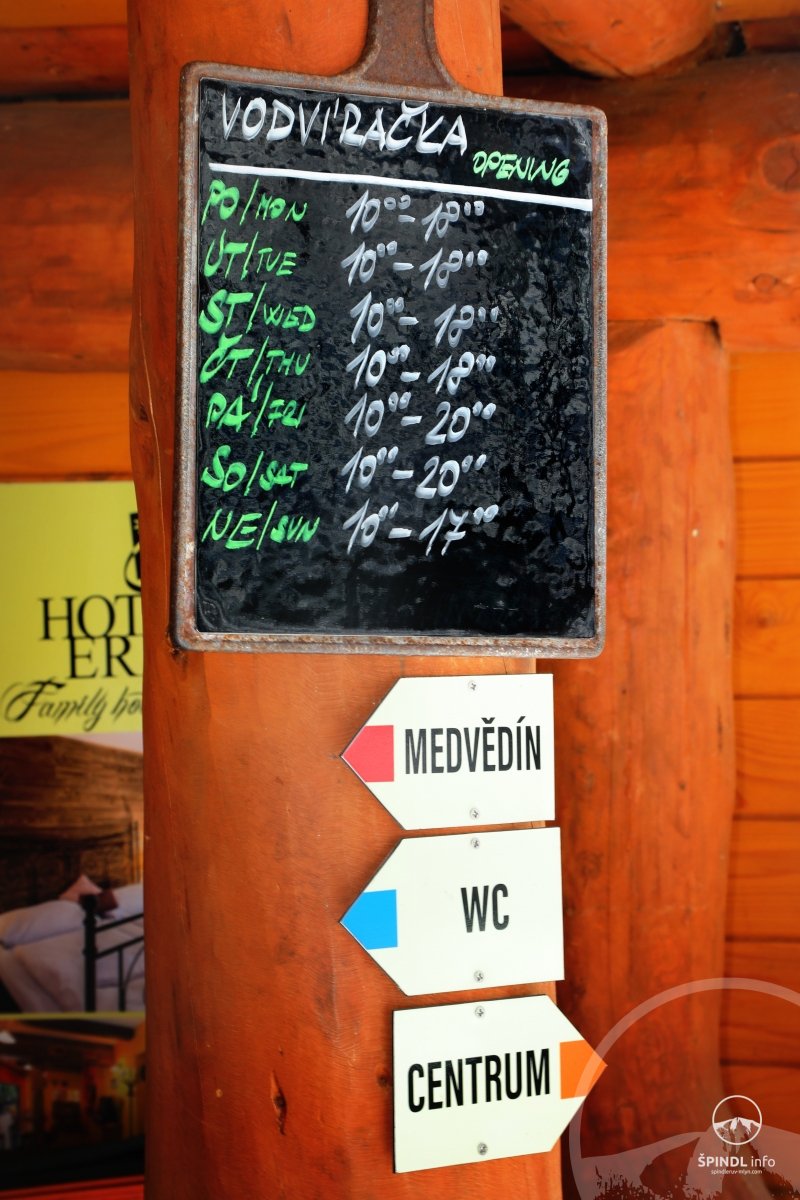 VODVÍRAČKA
OPENING
PO/MON 10⁰⁰-18⁰⁰
ÚT/TUE 10⁰⁰-18⁰⁰
ST/WED 10⁰⁰-18⁰⁰
ČT/THU 10⁰⁰-18⁰⁰
PÁ/FRI 10⁰⁰-20⁰⁰
SO/SAT 10⁰⁰-20⁰⁰
NE/SUN 10⁰⁰-17⁰⁰
Family
MEDVĚDÍN
WC
CENTRUM
ŠPINDL info
spindleruv-mlyn.com